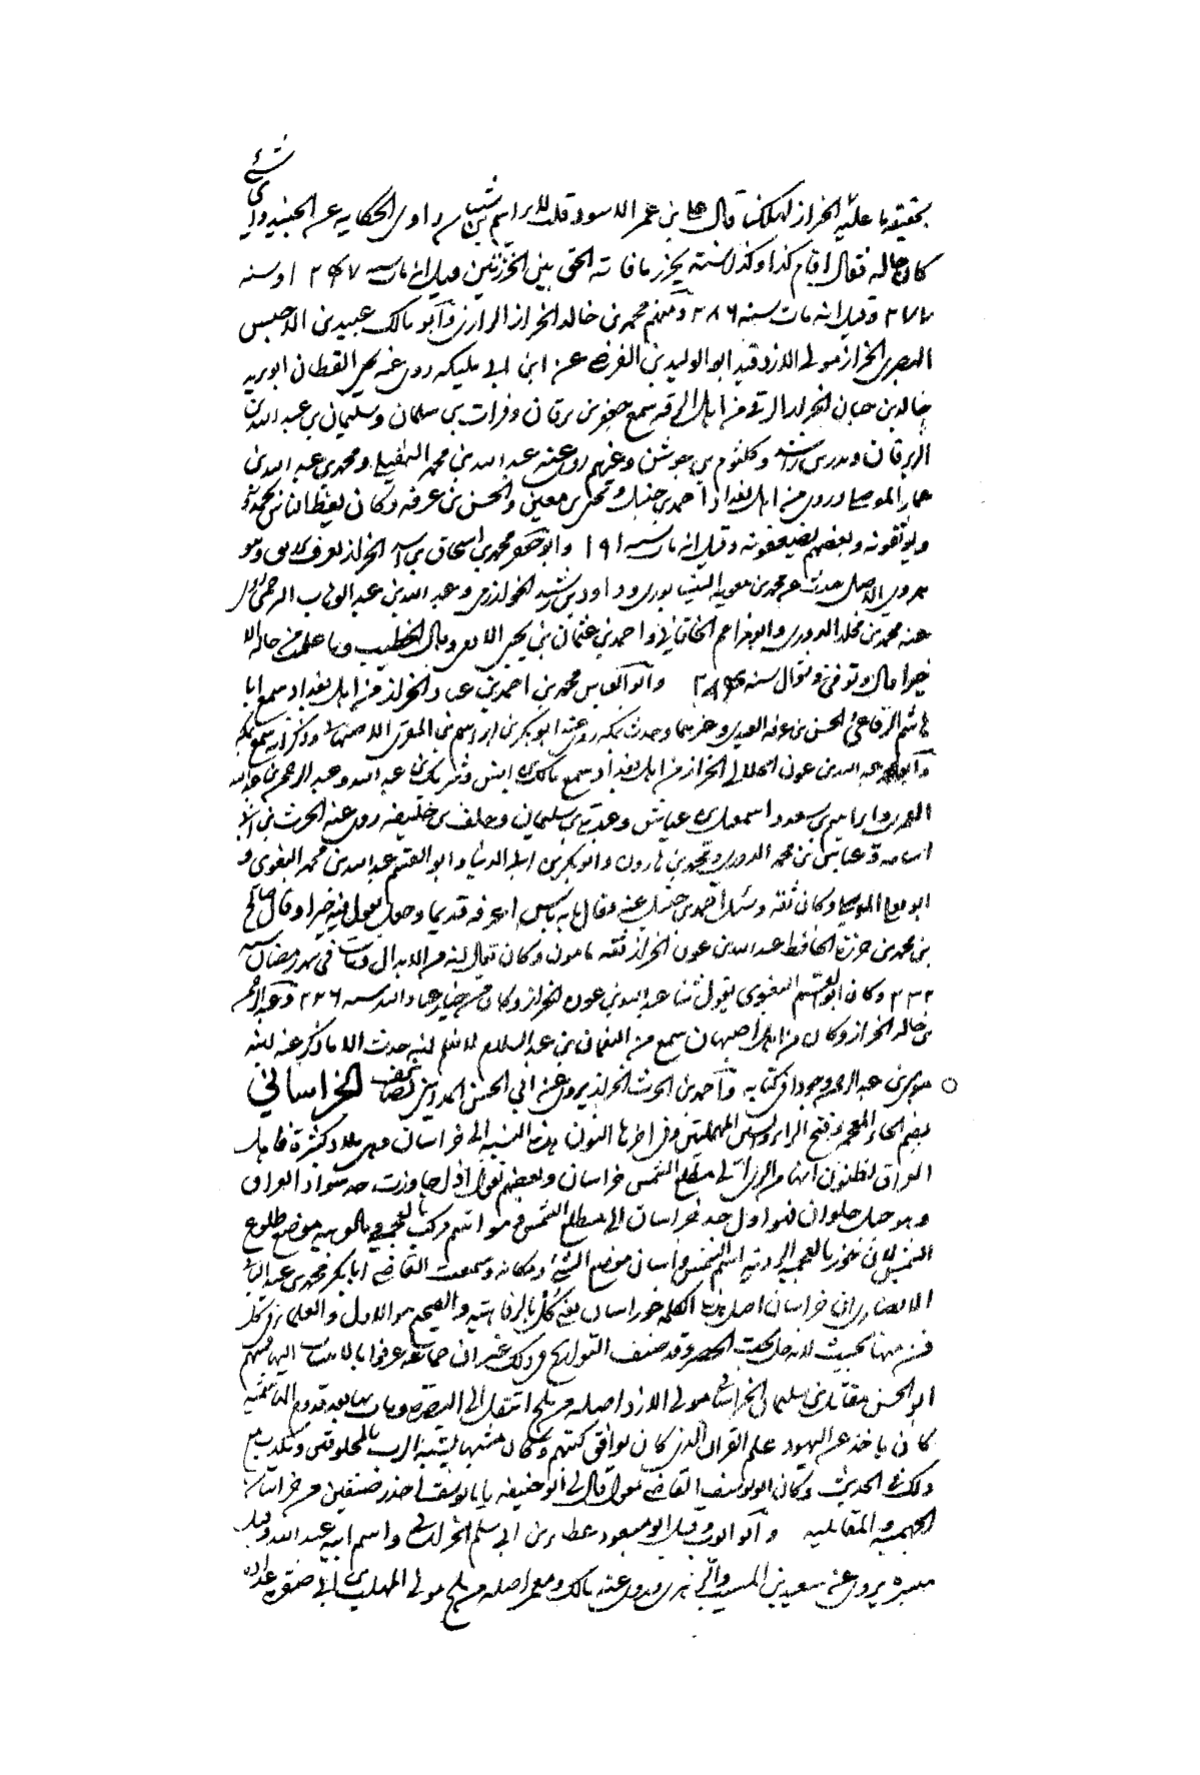 شئ
بحقيقة ما عليه الخراز لهلكنا قال علي بن عمر الاسود قلت لابراهيم بن شيبان راوي الحكاية عن الجنيد واي
كان حاله فقال اقام كذا وكذا سنة يخرز ما فاته الحق بين الخرزتين وقيل انه مات سنة ٢٤٧ او سنة
٢٧٧ وقيل انه مات سنة ٢٨٦ ومنهم محمد بن خالد الخراز الرازي وابو مالك عبيد بن الاخنس
البصري الخراز مولى الازد ابو الوليد بن الفرضي عن ابن ابي مليكه روى عنه يحيى القطان ابو يزيد
خالد بن حيان الخراز الرقي من اهل الرقه سمع جعفر بن برقان وفرات بن سلمان وسليمان بن عبد الله بن
الزبرقان وبدر بن راشد وكلثوم بن جوشن وغيرهم روى عنه عبد الله بن محمد النفيلي ومحمد بن عبد الله بن
عمار الموصلي وروى من اهل بغداد احمد بن حنبل ويحيى بن معين والحسن بن عرفه وكان بعض الناس
ويوثقونه وبعضهم يضعفونه وقيل انه مات سنة ١٩١ وابو جعفر محمد بن اسحاق بن اسد الخراز يعرف وهو
هروي الاصل حدث عن محمد بن معويه النيسابوري وداود بن رشيد الخوارزمي وعبد الله بن عبد الوهاب الرحمن روى
عنه محمد بن مخلد الدوري وابو مزاحم الخاقاني واحمد بن عثمان بن يحيى الادمي وقال الخطيب وما علمت من حاله الا
خيرا مات وتوفي في شوال سنة وابو العباس محمد بن احمد بن الخراز من اهل بغداد سمع ابا
هاشم الرفاعي والحسن بن عرفه العبدي وغيرهما وحدث بمكه روى عنه ابو بكر بن ابراهيم بن المقري الاصبهاني وذكر انه سمع بمكه
وابو محمد عبد الله بن عون الهلالي الخراز من اهل بغداد سمع مالك بن انس وشريك بن عبد الله وعبد الرحمن بن عبد الله
العمري وابراهيم بن سعد واسمعيل بن عياش وعبدة بن سليمان وخلف بن خليفه روى عنه الحرث بن ابي
اسامة وعباس بن محمد الدوري ومحمد بن هارون وابو بكر بن ابي الدنيا وابو القسم عبد الله بن محمد البغوي و
ابو يعلى الموصلي وكان ثقه وسئل احمد بن حنبل عنه فقال ما به باس اعرفه قديما وجعل يقول فيه خيرا وقال صالح
بن محمد بن جزرة الحافظ عبد الله بن عون الخراز ثقه مامون وكان يقال انه من الابدال ومات في شهر رمضان سنة
٢٣٢ وكان ابو القسم البغوي يقول ثنا عبد الله بن عون الخراز وكان من خيار عباد الله سنة ٢٢٦ وعبد الرحمن
بن خالد الخراز وكان من اهل اصبهان سمع من النعمان بن عبد السلام لا نعلم انه حدث الا ما ذكر عنه ابنه
موسى بن عبد الرحمن وجودا في كتابه واحمد بن الحرث الخراز يروي عن ابي الحسن المدايني تصانيفه الخراساني
بضم الخاء المعجمه وفتح الراء والسين المهملتين وفي اخرها النون هذه النسبة الى خراسان وهي بلاد كثيرة فاهل
العراق يظنون انها من الري الى مطلع الشمس خراسان وبعضهم يقول اذا جاوزت حد سواد العراق
وهو جبل حلوان فهو اول حد خراسان الى مطلع الشمس وهو اسم مركب بالعجمي بالعربيه موضع طلوع
الشمس لان خور بالعجمية الدرية اسم الشمس واسان موضع الشئ ومكانه وسمعت القاضي ابا بكر محمد بن عبد الباقي
الانصاري ان خراسان اصل هذه الكلمة خور اسان يعني كل بالرفاهية والصحيح هو الاول والعلما في كل
فن منها بحيث لا يدخل تحت الحصر وقد صنف التواريخ في ذلك غير ان جماعة عرفوا بالانتساب اليها فمنهم
ابو الحسن مقاتل بن سليمان الخراساني مولى الازد اصله من بلخ انتقل الى البصرة ومات بها بعد قدوم الهاشميه
كان ياخذ عن اليهود علم القران الذي كان يوافق كتبهم وكان مشبها يشبه الرب بالمخلوقين ويكذب مع
ذلك في الحديث وكان ابو يوسف القاضي يقول قال لي ابو حنيفه يا ابا يوسف احذر صنفين من خراسان
الجهمية والمقاتليه وابو ايوب وقيل ابو مسعود عطا بن ابي مسلم الخراساني واسم ابيه عبد الله وقيل
ميسره يروي عن سعيد بن المسيب والزهري روى عنه مالك ومعمر اصله من بلخ مولى المهلب بن ابي صفره عداده